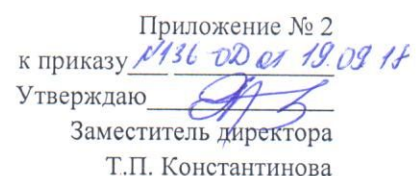 Приложение № 2
к приказу №136-ОД от 19.09.18
Утверждаю
Заместитель директора
Т.П. Константинова